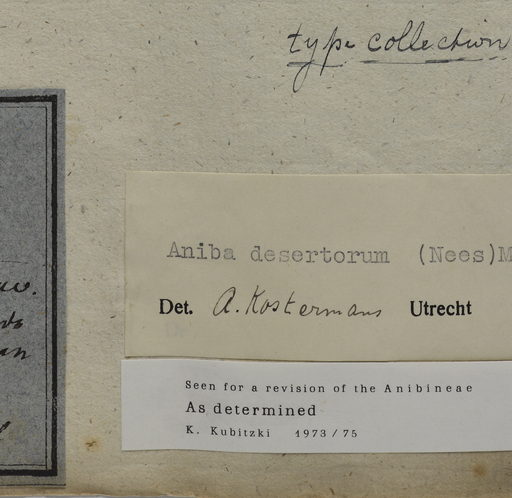 type collection
Aniba desertorum (Nees)M
Det. A. Kostermans Utrecht
Seen for a revision of the Anibineae
As determined
K. Kubitzki 1973/75